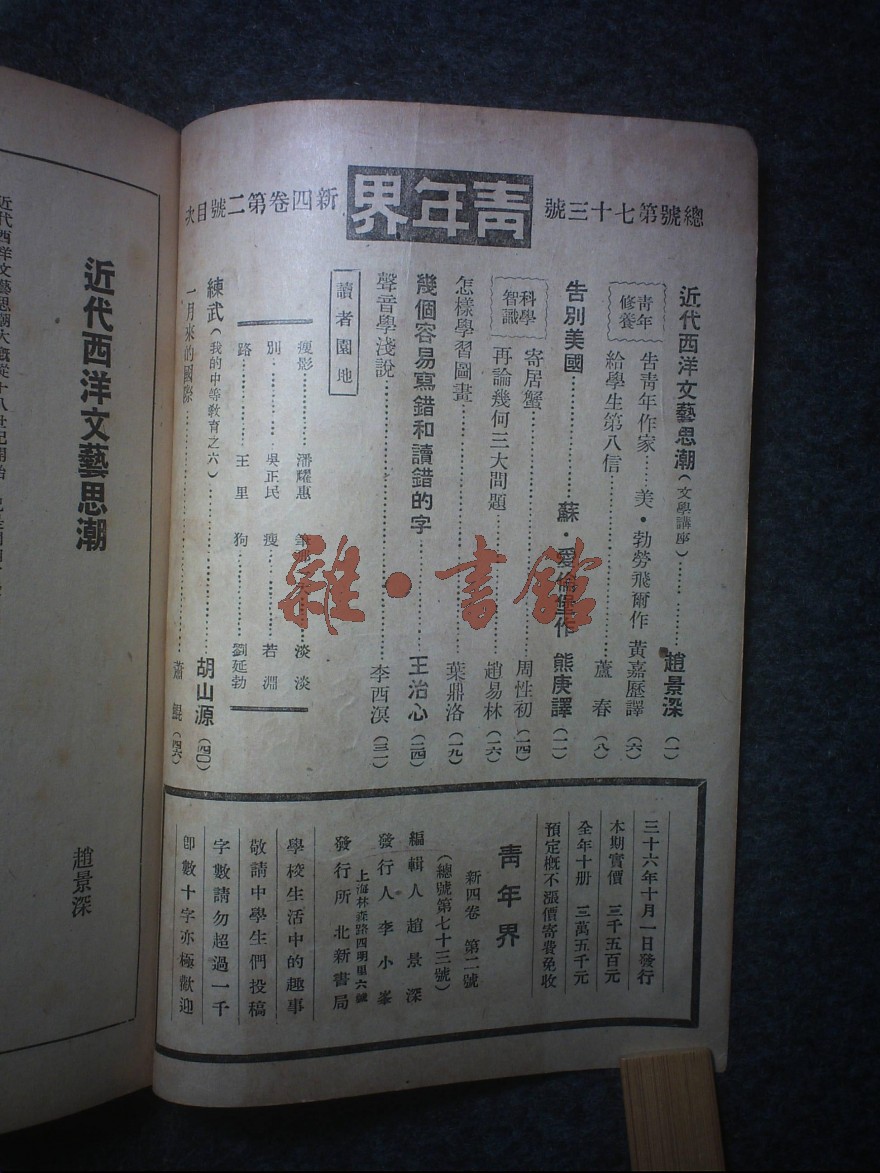 總號第七十三號
青年界
新四卷第二號目次
近代西洋文藝思潮(文學講座)………趙景深(一)
青年修養
告青年作家……美·勃勞飛爾作 黃嘉歷譯(六)
給學生第八信………蘆春(八)
告別美國………蘇·愛倫堡作 熊庚譯(一一)
科學智識
寄居蟹………周性初(一四)
再論幾何三大問題………趙易林(一六)
怎樣學習圖畫………葉鼎洛(一九)
幾個容易寫錯和讀錯的字………王治心(二四)
聲音學淺說………李西溟(三一)
讀者園地
瘦影………潘耀惠
淡淡
別………吳正民
瘦………若淵
路………王里
狗………劉延勃
練武(我的中等教育之六)………胡山源(四〇)
一月來的國際………蕭鯤(四六)
三十六年十月一日發行
本期實價 三千五百元
全年十册 三萬五千元
預定概不漲價寄費免收
青年界
新四卷 第二號
(總號第七十三號)
編輯人 趙景深
發行人 李小峯
上海林森路四明里六號
發行所 北新書局
學校生活中的趣事
敬請中學生們投稿
字數請勿超過一千
卽數十字亦極歡迎
近代西洋文藝思潮
趙景深
近代西洋文藝思潮大概從十八世紀開始
雜·書館